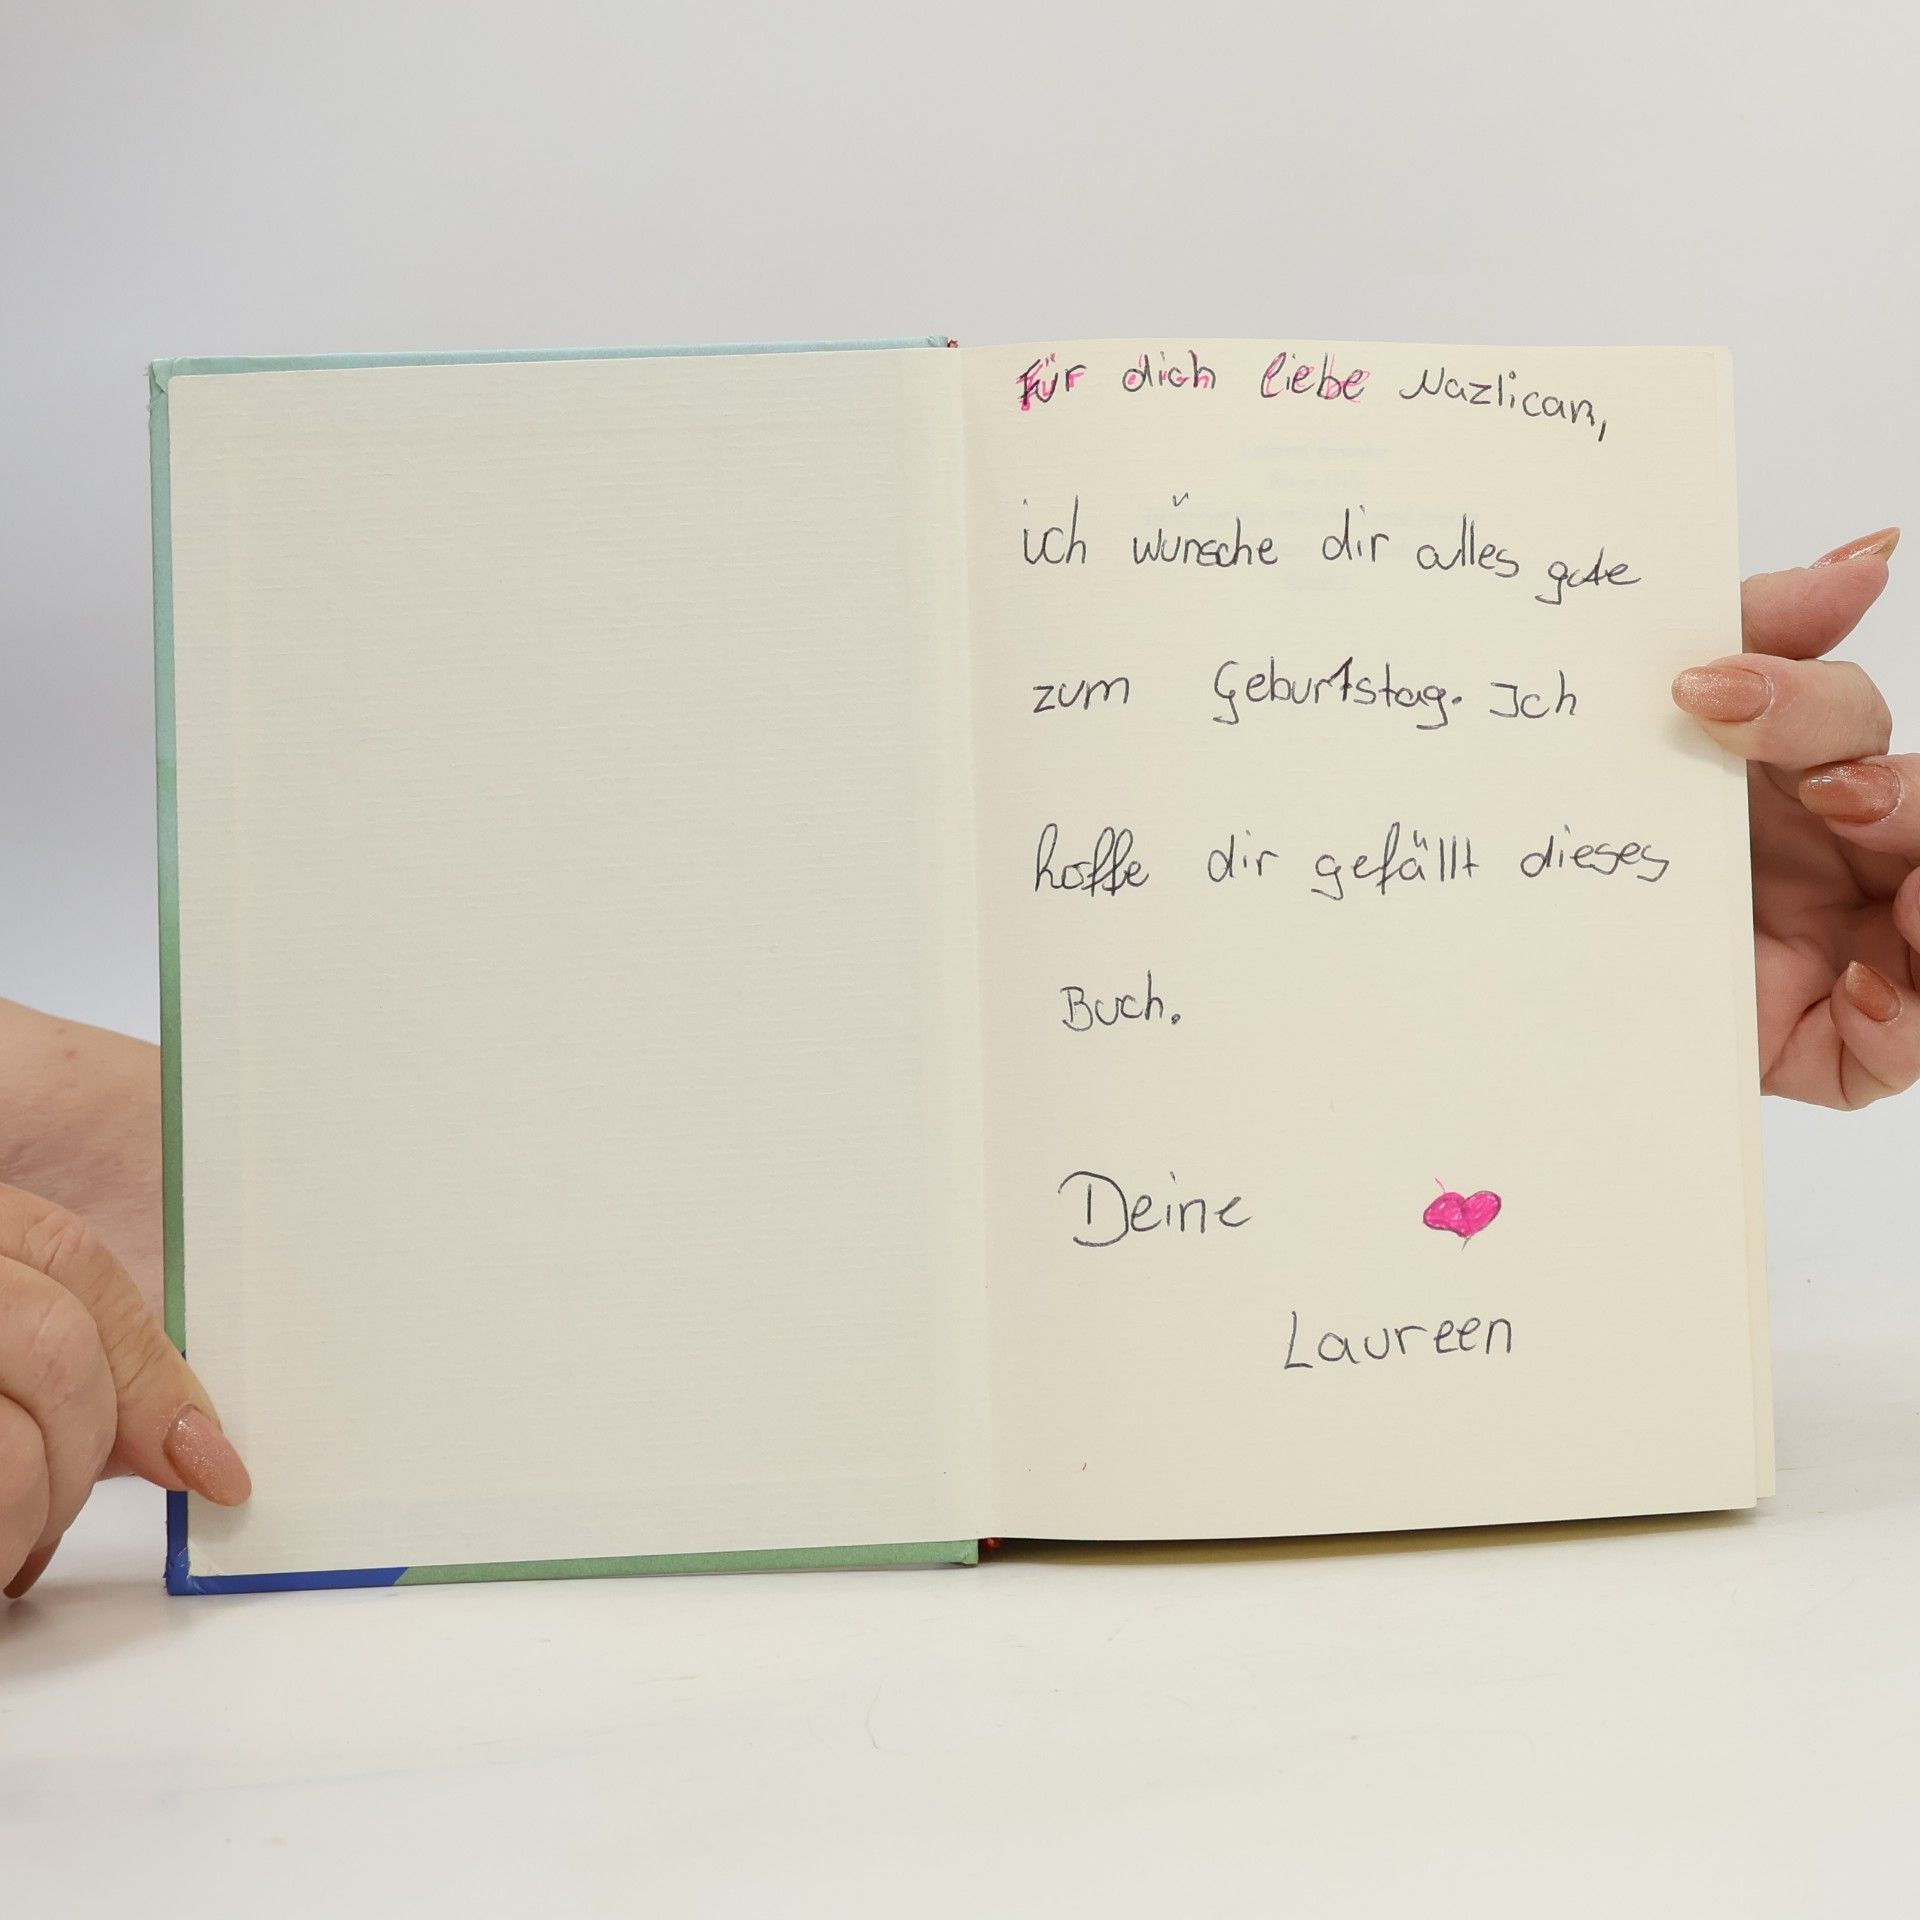 Für dich liebe Nazlican,
ich wünsche dir alles gute
zum Geburtstag. Ich
hoffe dir gefällt dieses
Buch.
Deine
Laureen